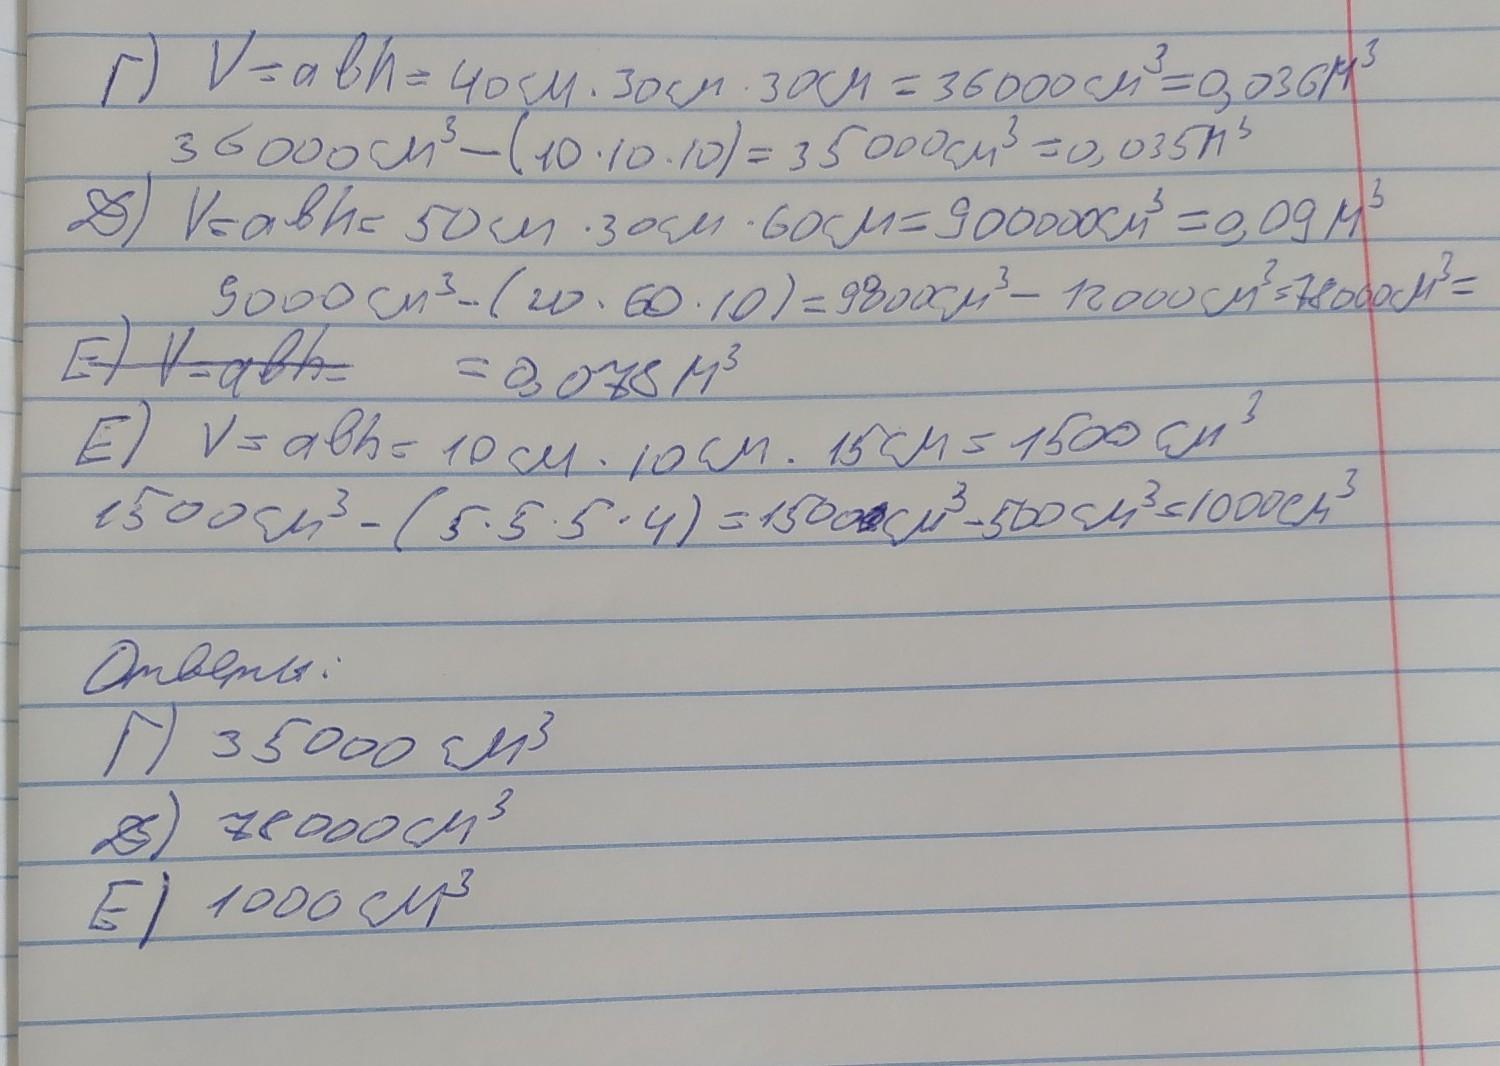 Г) V=abh=40см·30см·30см=36000см³=0,036м³
36000см³-(10·10·10)=35000см³=0,035м³
Д) V=abh=50см·30см·60см=90000см³=0,09м³
9000см³-(20·60·10)=9000см³-12000см³=78000см³=
Е) V=abh= =0,078м³
Е) V=abh=10см·10см·15см=1500см³
1500см³-(5·5·5·4)=1500см³-500см³=1000см³
Ответы:
Г) 35000см³
Д) 78000см³
Е) 1000см³